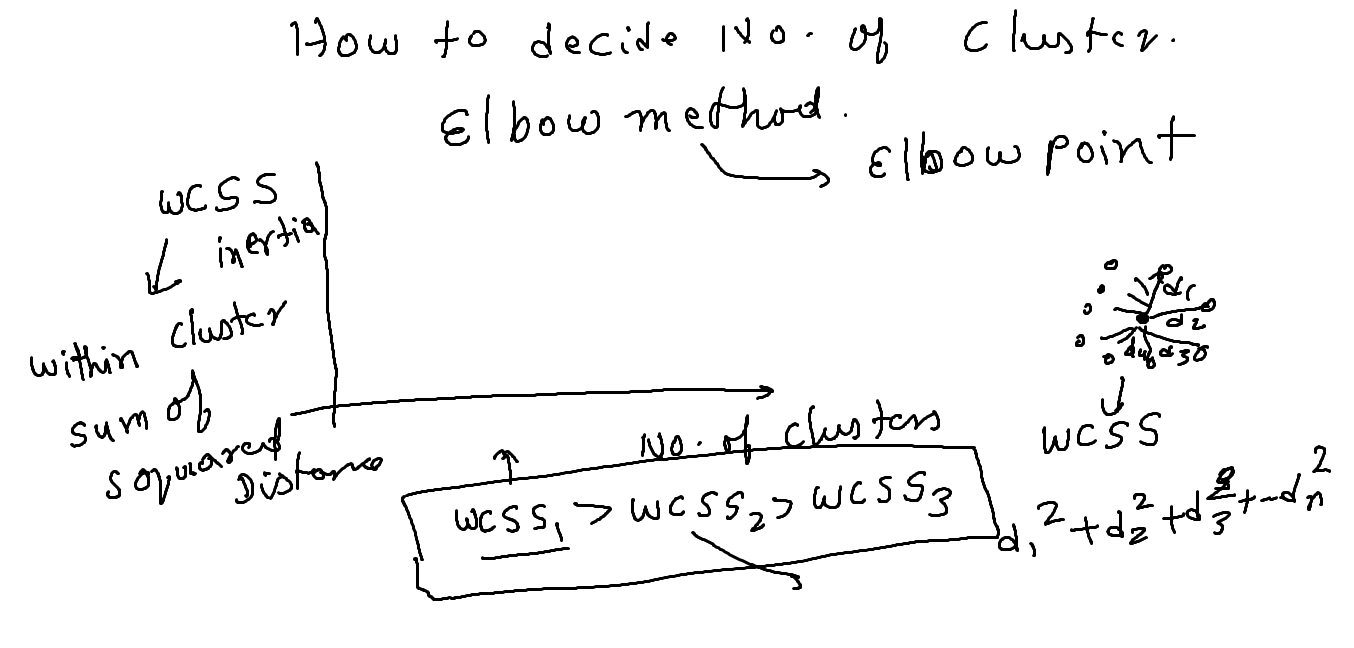 How to decide No. of Cluster.
Elbow method.
Elbow point
WCSS
inertia
within cluster
sum of
squared
Distance
No. of clusters
WCSS₁ > WCSS₂ > WCSS₃
d₁
d₂
d₃
d₄
WCSS
d₁² + d₂² + d₃² + -- dₙ²